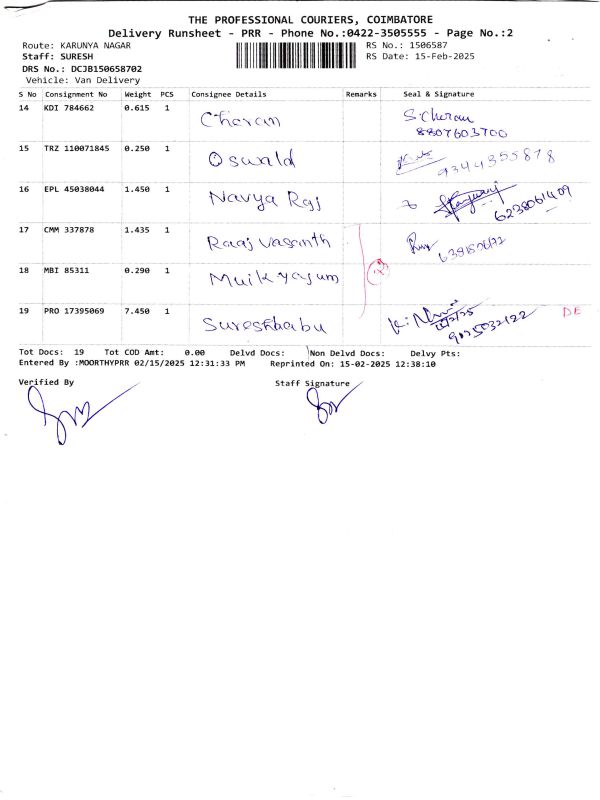 THE PROFESSIONAL COURIERS, COIMBATORE
Delivery Runsheet - PRR - Phone No.:0422-3505555 - Page No.:2
Route: KARUNYA NAGAR RS No.: 1506587
Staff: SURESH RS Date: 15-Feb-2025
DRS No.: DCJB150658702
Vehicle: Van Delivery
S No Consignment No Weight PCS Consignee Details Remarks Seal & Signature
14 KDI 784662 0.615 1 Cheran S.Cheran
8807603700
15 TRZ 110071845 0.250 1 Oswald 9344355878
16 EPL 45038044 1.450 1 Navya Raj 6238061409
17 CMM 337878 1.435 1 Raaj Vasanth
18 MBI 85311 0.290 1
19 PRO 17395069 7.450 1 Sureshbabu 9025032122 DE
Tot Docs: 19 Tot COD Amt: 0.00 Delvd Docs: Non Delvd Docs: Delvy Pts:
Entered By :MOORTHYPRR 02/15/2025 12:31:33 PM Reprinted On: 15-02-2025 12:38:10
Verified By Staff Signature